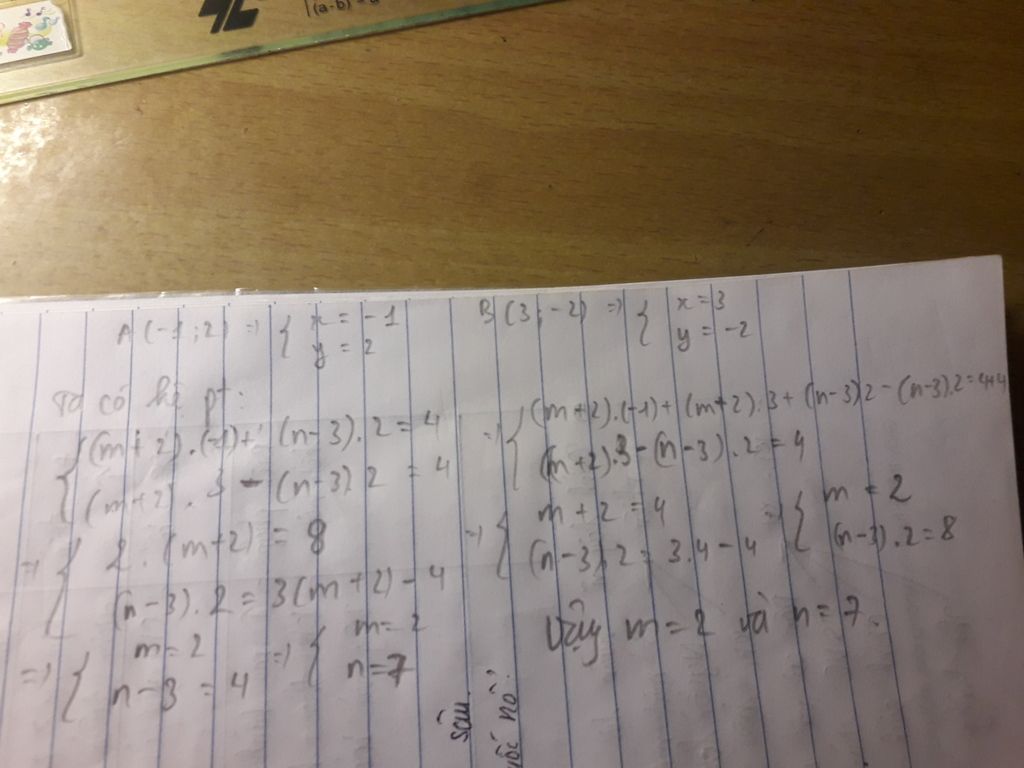 (a-b)
A (-1; 2) => { x = -1
y = 2
B (3; -2) => { x = 3
y = -2
Ta có hệ pt:
{ (m+2).(-1)+ (n-3).2 = 4
(m+2).3 - (n-3)2 = 4
=> { (m+2).(-1)+ (m+2).3 + (n-3)2 - (n-3).2 = 4+4
(m+2)3-(n-3).2 = 4
=> { 2.(m+2) = 8
(n-3).2 = 3(m+2)-4
=> { m+2 = 4
(n-3)2 = 3.4-4
=> { m = 2
(n-3).2 = 8
=> { m = 2
n-3 = 4
=> { m = 2
n = 7
Vậy m = 2 và n = 7.